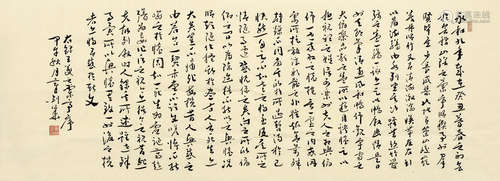 永和九年歲在癸丑暮春之初會
于會稽山陰之蘭亭修禊事也群
賢畢至少長咸集此地有崇山峻
領茂林修竹又有清流激湍映帶左右引
以為流觴曲水列坐其次雖無絲竹管
弦之盛一觴一詠亦足以暢敘幽情是日
也天朗氣清惠風和暢仰觀宇宙之
大俯察品類之盛所以遊目騁懷足以
極視聽之娛信可樂也夫人之相與俯
仰一世或取諸懷抱悟言一室之內或因
寄所託放浪形骸之外雖趣舍萬殊
靜躁不同當其欣於所遇暫得於己
快然自足不知老之將至及其所之既
倦情隨事遷感慨係之矣向之所
欣俛仰之間以為陳跡猶不能不以之興
懷況修短隨化終期於盡古人云死生亦
大矣豈不痛哉每攬昔人興感之由
若合一契未嘗不臨文嗟悼不能
喻之於懷固知一死生為虛誕齊彭
殤為妄作後之視今亦由今之視昔
悲夫故列敘時人錄其所述雖世殊
事異所以興懷其致一也後之攬
者亦將有感於斯文
右錄王羲之蘭亭序